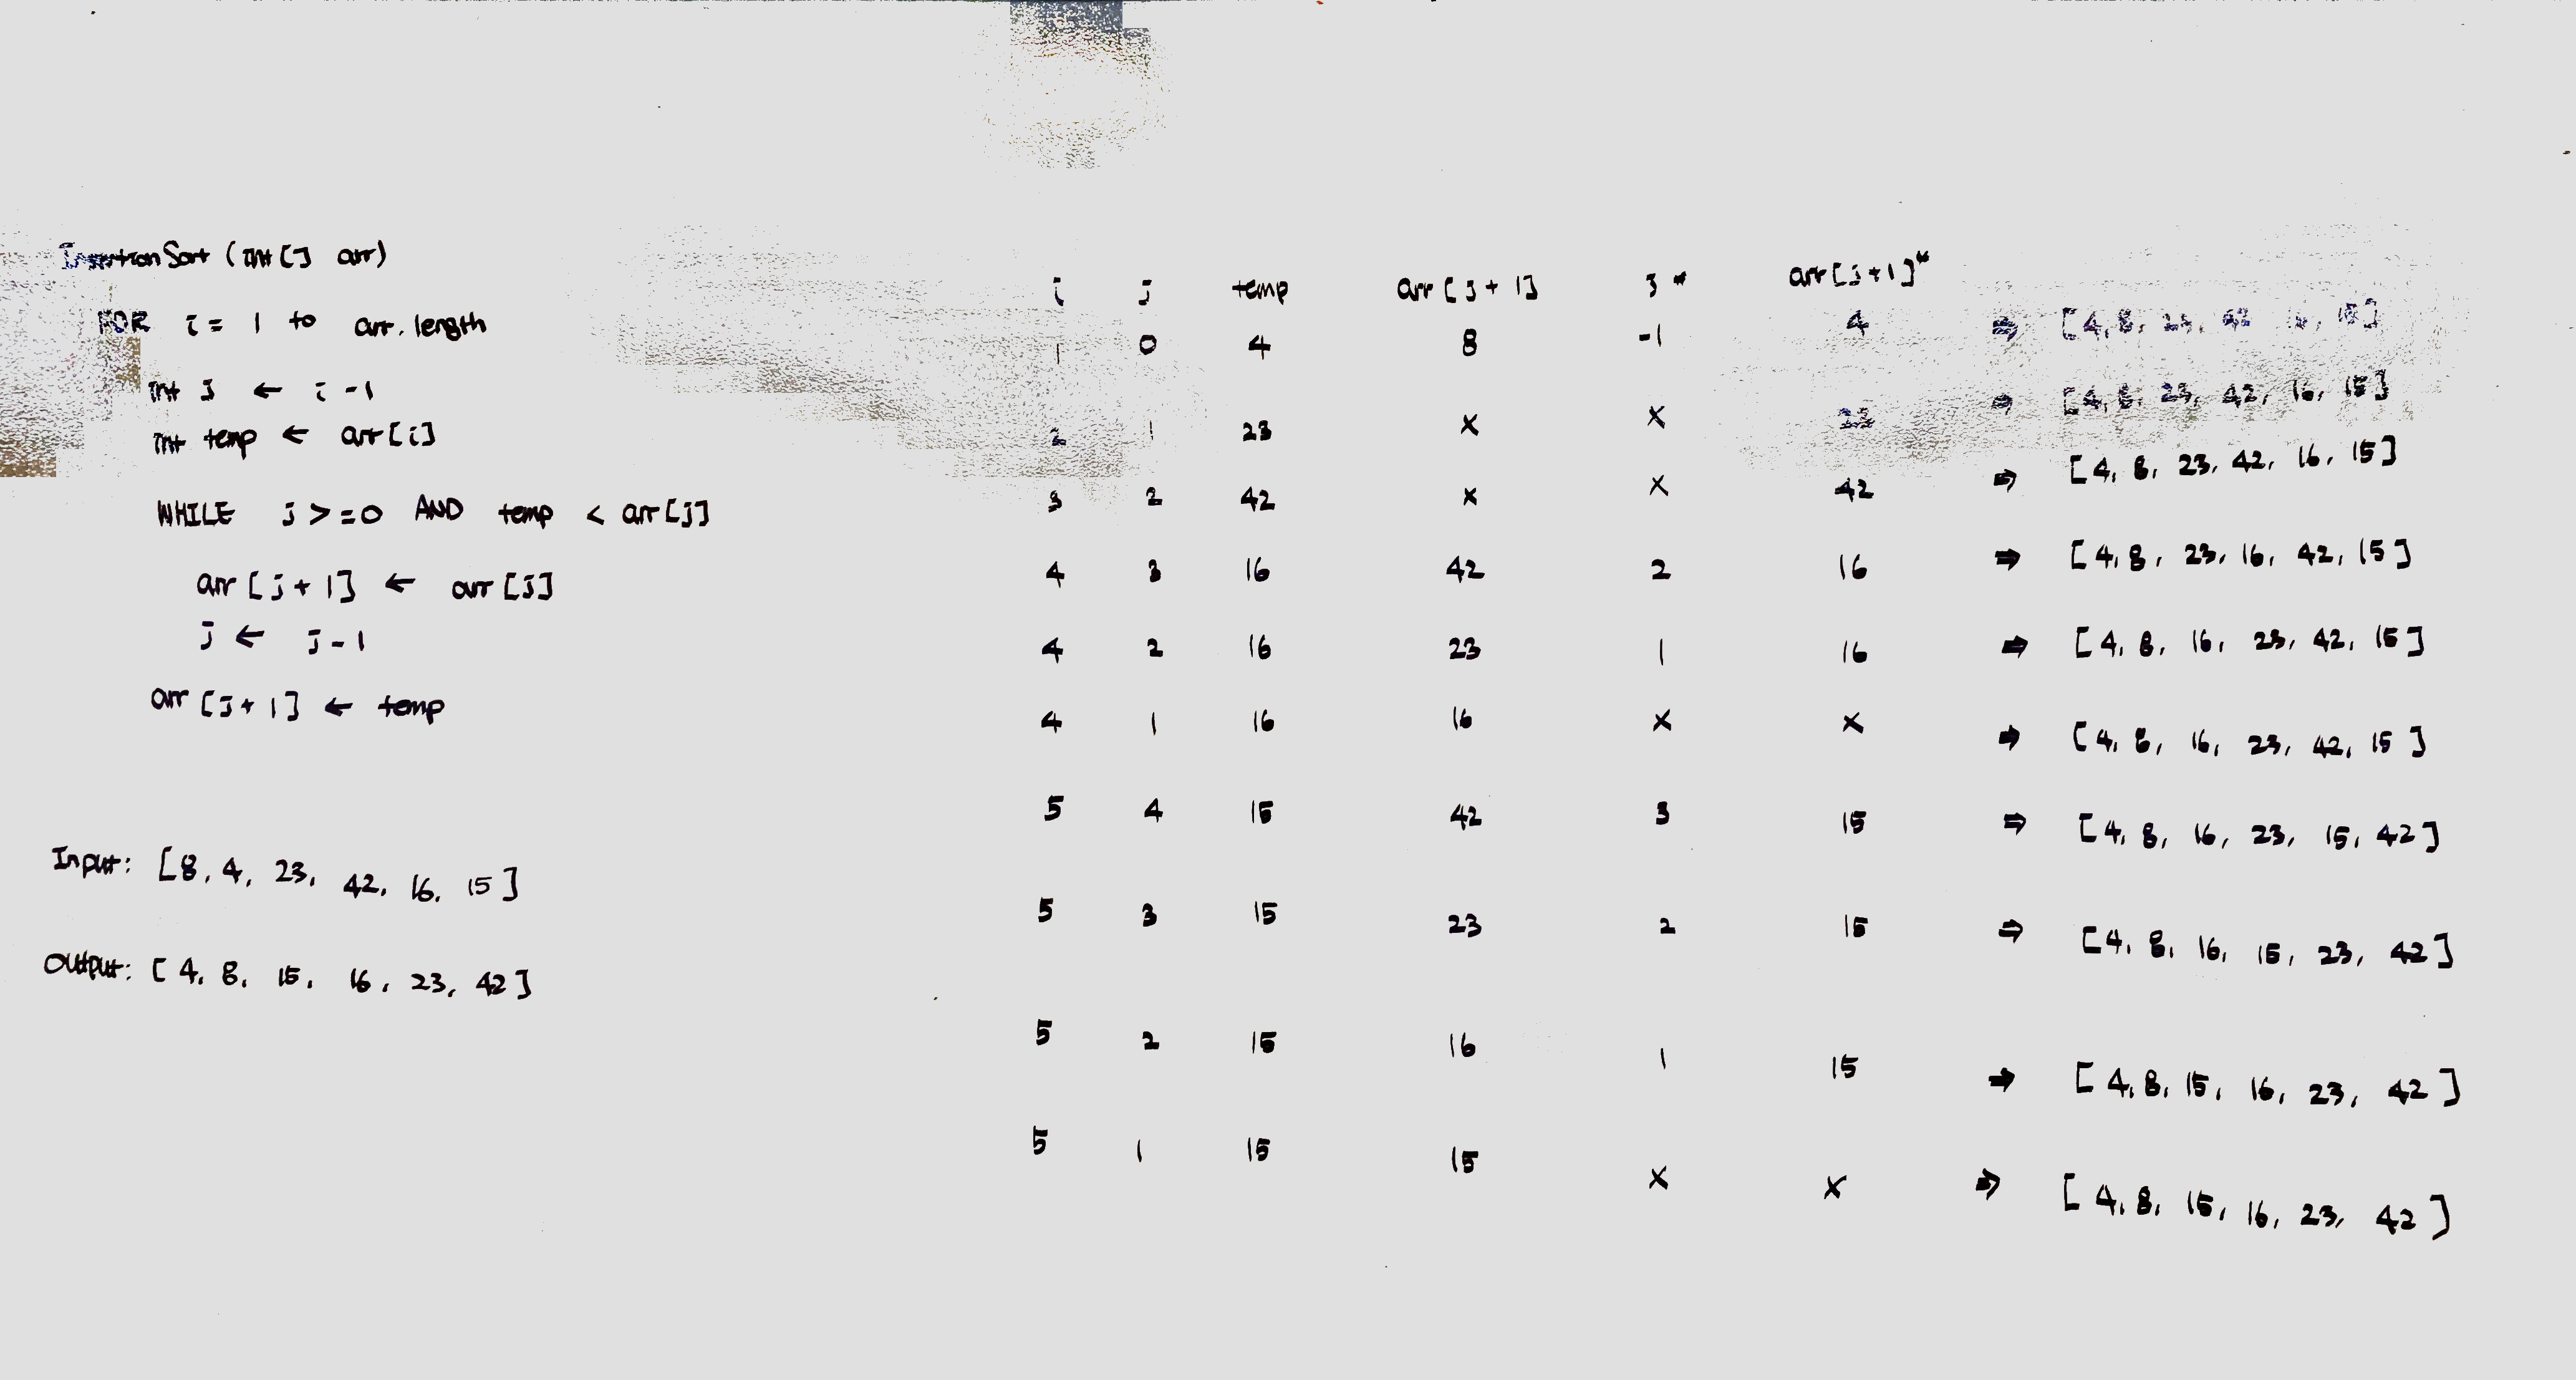 InsertionSort (int[] arr)
FOR i = 1 to arr.length
int j ← i - 1
int temp ← arr[i]
WHILE j >= 0 AND temp < arr[j]
arr[j + 1] ← arr[j]
j ← j - 1
arr[j + 1] ← temp
Input: [8, 4, 23, 42, 16, 15]
Output: [4, 8, 15, 16, 23, 42]
i j temp arr[j + 1] j* arr[j+1]*
1 0 4 8 -1 4 ⇒ [4, 8, 23, 42, 16, 15]
2 1 23 x x 23 ⇒ [4, 8, 23, 42, 16, 15]
3 2 42 x x 42 ⇒ [4, 8, 23, 42, 16, 15]
4 3 16 42 2 16 ⇒ [4, 8, 23, 16, 42, 15]
4 2 16 23 1 16 ⇒ [4, 8, 16, 23, 42, 15]
4 1 16 16 x x ⇒ [4, 8, 16, 23, 42, 15]
5 4 15 42 3 15 ⇒ [4, 8, 16, 23, 15, 42]
5 3 15 23 2 15 ⇒ [4, 8, 16, 15, 23, 42]
5 2 15 16 1 15 ⇒ [4, 8, 15, 16, 23, 42]
5 1 15 15 x x ⇒ [4, 8, 15, 16, 23, 42]